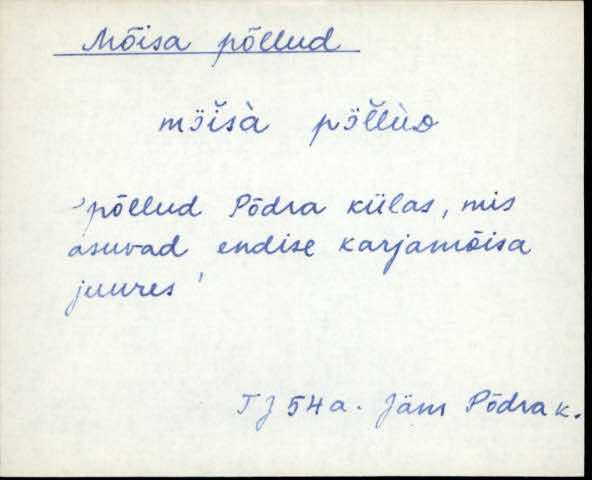 Mõisa põllud
mo̬i̬šà po̬l̆l̆ùD
'põllud Põdra külas, mis
asuvad endise karjamõisa
juures'
TJ 54a. Jäm Põdra k.